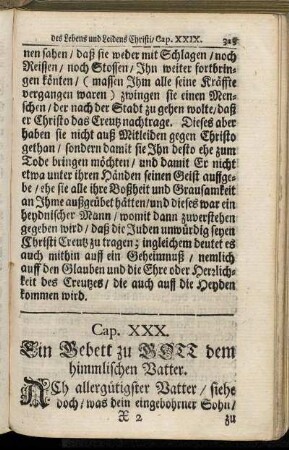 des Lebens und Leidens Christi/ Cap. XXIX.
nen sahen/ daß sie weder mit Schlagen/ noch
Reissen/ noch Stossen/ Ihn weiter fortbrin-
gen könten/ (massen Ihm alle seine Kräffte
vergangen waren) zwingen sie einen Men-
schen/ der nach der Stadt zu gehen wolte/ daß
er Christo das Creutz nachtrage. Dieses aber
haben sie nicht auß Mitleiden gegen Christo
gethan/ sondern damit sie Ihn desto ehe zum
Tode bringen möchten/ und damit Er nicht
etwa unter ihren Händen seinen Geist auffge-
be/ ehe sie alle ihre Boßheit und Grausamkeit
an Ihme außgeübet hätten/ und dieses war ein
heydnischer Mann/ womit dann zuverstehen
gegeben wird/ daß die Juden unwürdig seyen
Christi Creutz zu tragen; ingleichem deutet es
auch mithin auff ein Geheimnuß/ nemlich
auff den Glauben und die Ehre oder Herzlich-
keit des Creutzes/ die auch auff die Heyden
kommen wird.
Cap. XXX.
Ein Gebett zu GOTT dem
himmlischen Vatter.
ACh allergütigster Vatter/ siehe
doch/ was dein eingebohrner Sohn/
X 2 zu